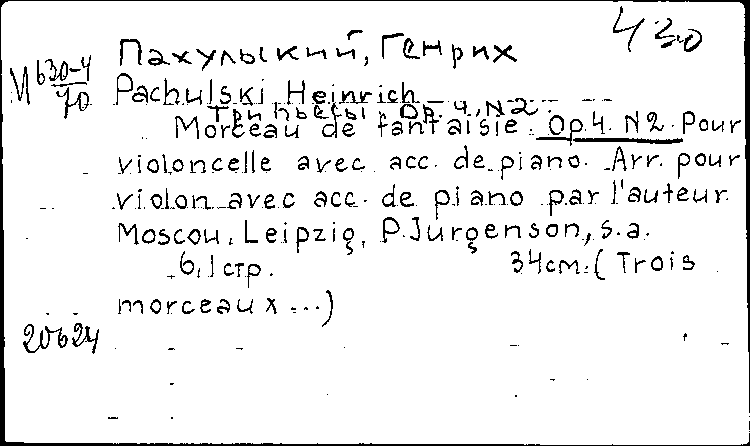 430
Пахульский, Генрих
М 630-4
70
Pachulski Heinrich
Три пьесы. Ор. 4, N2.
Morceau de fantaisie. Op.4. N2. Pour
violoncelle avec acc. de piano. Arr. pour
violon avec acc. de piano par l'auteur.
Moscou, Leipzig, P. Jurgenson, s.a.
6,1 стр. 34см. (Trois
morceaux ...)
20624